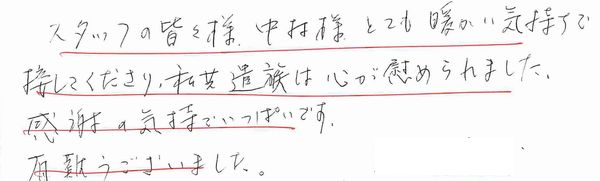 スタッフの皆々様、中村様とても暖かい気持ちで
接してくださり、私共遺族は心が慰められました、
感謝の気持でいっぱいです、
有難うございました。